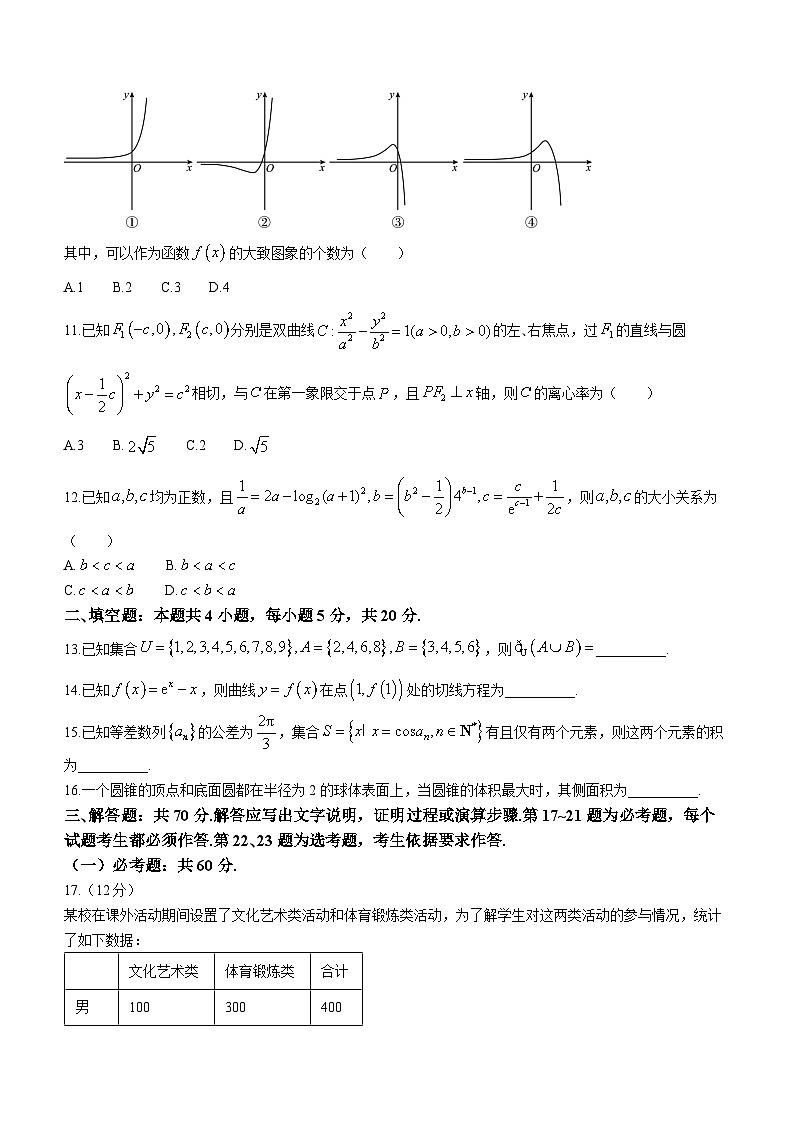 y y y y
O x O x O x O x
① ② ③ ④
其中，可以作为函数 f(x) 的大致图象的个数为（ ）
A.1 B.2 C.3 D.4
11.已知 F₁(−c,0), F₂(c,0) 分别是双曲线 C: x²/a² − y²/b² = 1(a > 0, b > 0) 的左、右焦点，过 F₁ 的直线与圆
(x − 1/2 c)² + y² = c² 相切，与 C 在第一象限交于点 P，且 PF₂ ⊥ x 轴，则 C 的离心率为（ ）
A.3 B. 2√5 C.2 D. √5
12.已知 a,b,c 均为正数，且 1/a = 2a − log₂(a+1)², b = (b² − 1/2)4^(b−1), c = c/e^(c−1) + 1/(2c)，则 a,b,c 的大小关系为
（ ）
A. b < c < a B. b < a < c
C. c < a < b D. c < b < a
二、填空题：本题共 4 小题，每小题 5 分，共 20 分.
13.已知集合 U = {1,2,3,4,5,6,7,8,9}, A = {2,4,6,8}, B = {3,4,5,6}，则 ð_U(A∪B) = __________.
14.已知 f(x) = eˣ − x，则曲线 y = f(x) 在点 (1, f(1)) 处的切线方程为__________.
15.已知等差数列 {aₙ} 的公差为 2π/3，集合 S = {x| x = cosaₙ, n ∈ N*} 有且仅有两个元素，则这两个元素的积
为__________.
16.一个圆锥的顶点和底面圆都在半径为 2 的球体表面上，当圆锥的体积最大时，其侧面积为__________.
三、解答题：共 70 分.解答应写出文字说明，证明过程或演算步骤.第 17~21 题为必考题，每个
试题考生都必须作答.第 22、23 题为选考题，考生依据要求作答.
（一）必考题：共 60 分.
17.（12分）
某校在课外活动期间设置了文化艺术类活动和体育锻炼类活动，为了解学生对这两类活动的参与情况，统计
了如下数据：
文化艺术类 体育锻炼类 合计
男 100 300 400